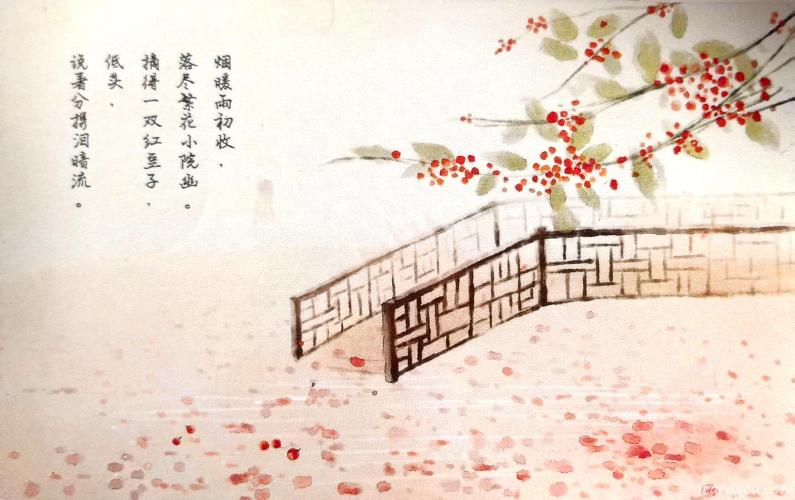 烟暖雨初收，
落尽繁花小院幽。
摘得一双红豆子，
低头，
说著分携泪暗流。